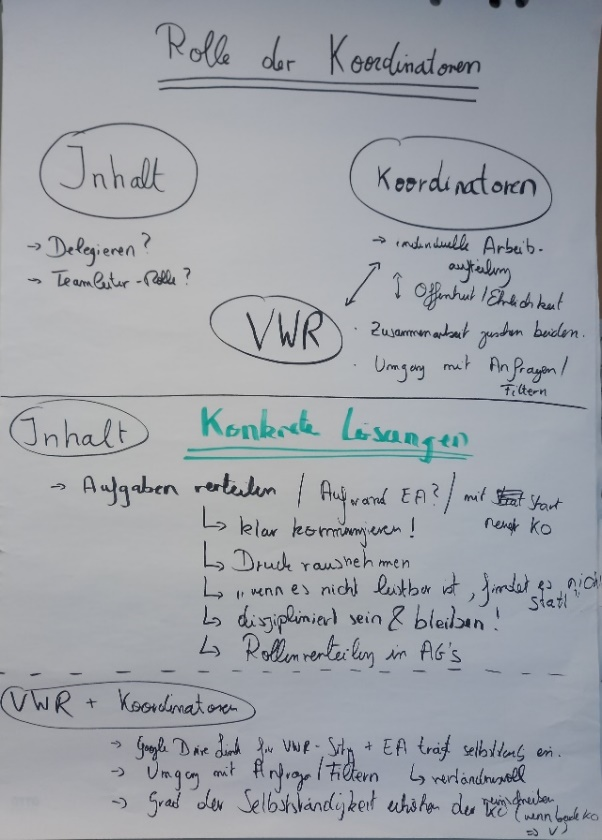 Rolle der Koordinatoren
Inhalt
→ Delegieren?
→ Teamleiter-Rolle?
Koordinatoren
→ individuelle Arbeits-
aufteilung
↕ Offenheit / Ehrlichkeit
· Zusammenarbeit zwischen beiden.
· Umgang mit Anfragen /
Filtern
VWR
Inhalt
Konkrete Lösungen
→ Aufgaben verteilen / Aufwand EA? / mit Start
neuer KO
↳ klar kommunizieren!
↳ Druck rausnehmen
↳ "wenn es nicht leistbar ist, findet es nicht
statt"
↳ diszipliniert sein & bleiben!
↳ Rollenverteilung in AG's
VWR + Koordinatoren
→ Google Drive Link für VWR- + EA trägt selbst ein.
→ Umgang mit Anfrage / Filtern ↳ verständnisvoll
→ Grad der Selbstständigkeit erhöhen der KO (wenn beide KO
⇒ V)